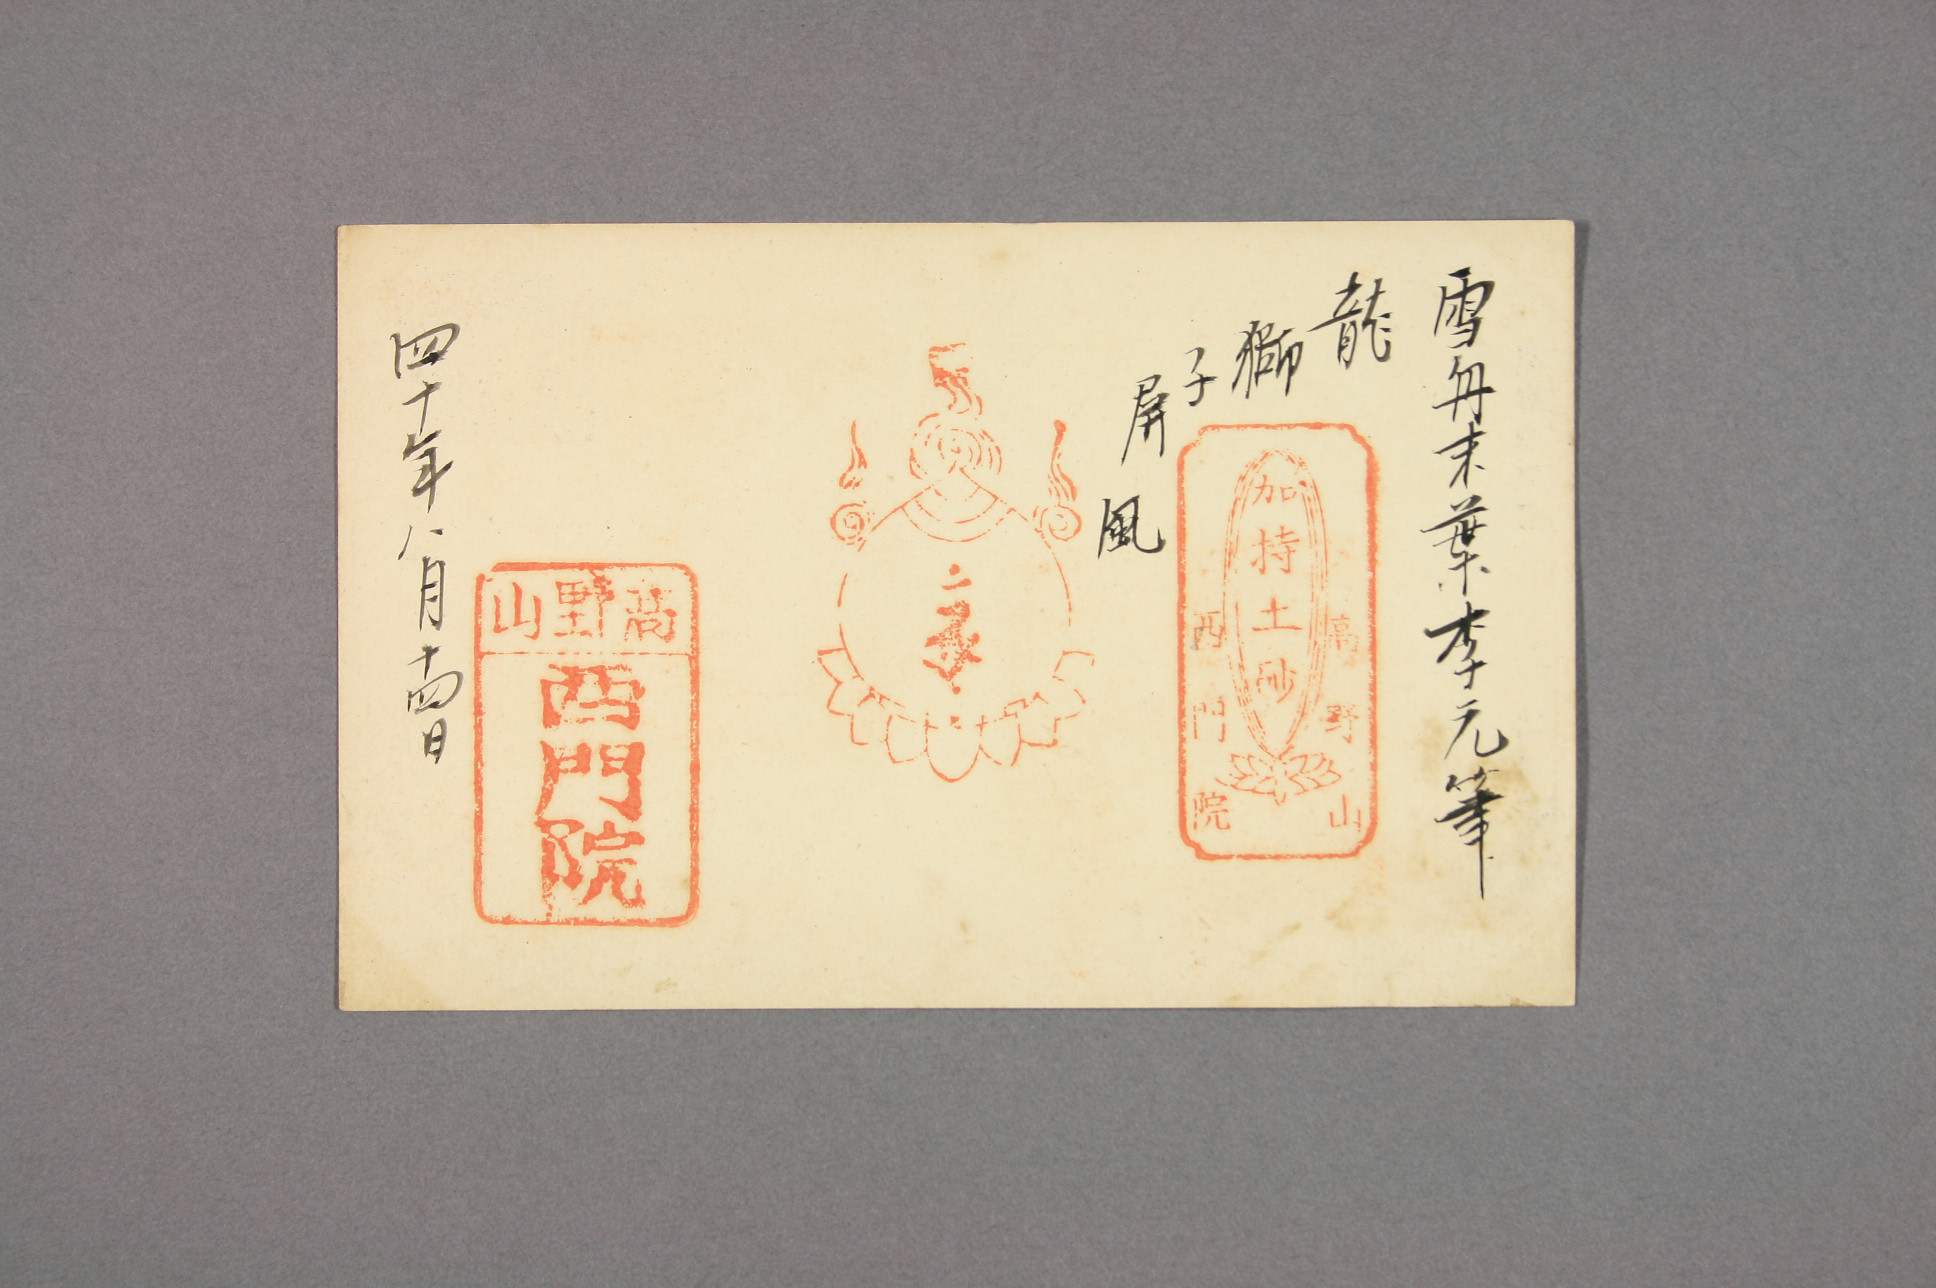 雪舟末葉李元筆
龍獅子屏風
加持土砂
高野山
西門院
高野山
西門院
四十年八月十四日